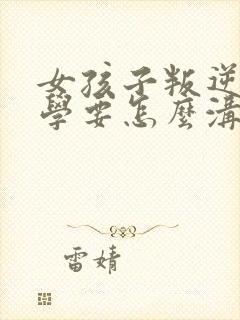 女孩子叛逆
學要怎麼溝
雷婧